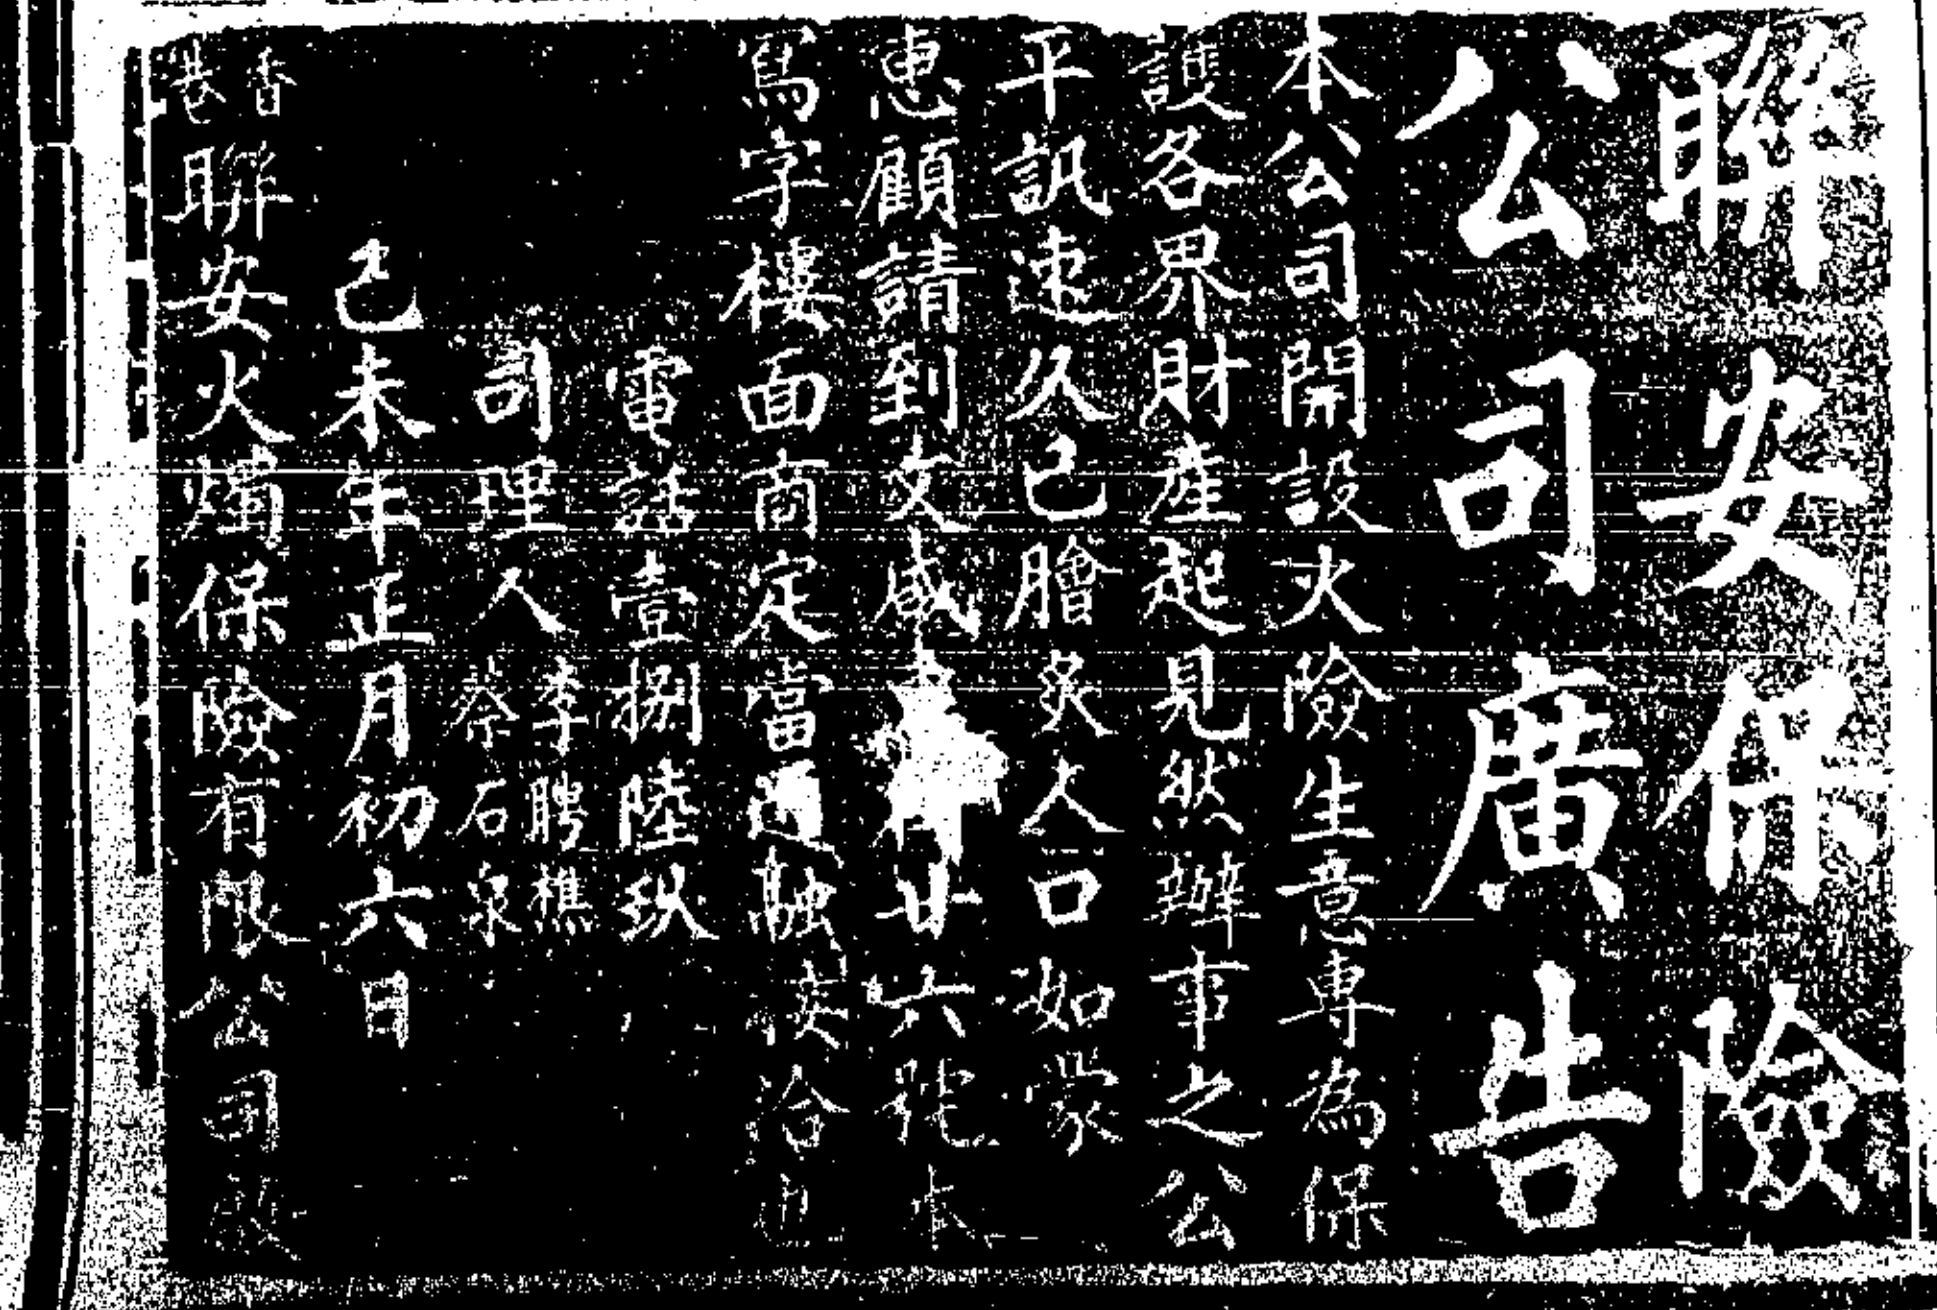 聯安保險
公司廣告
本公司開設火險生意專為保
護各界財產起見然辦事之公
平訊速久已膾炙人口如蒙
惠顧請到文咸 廿六號本
寫字樓面商定當通融妥洽也
電話壹捌陸玖
司理人 李聘樵 余石泉
己未年正月初六日
香港聯安火燭保險有限公司啟